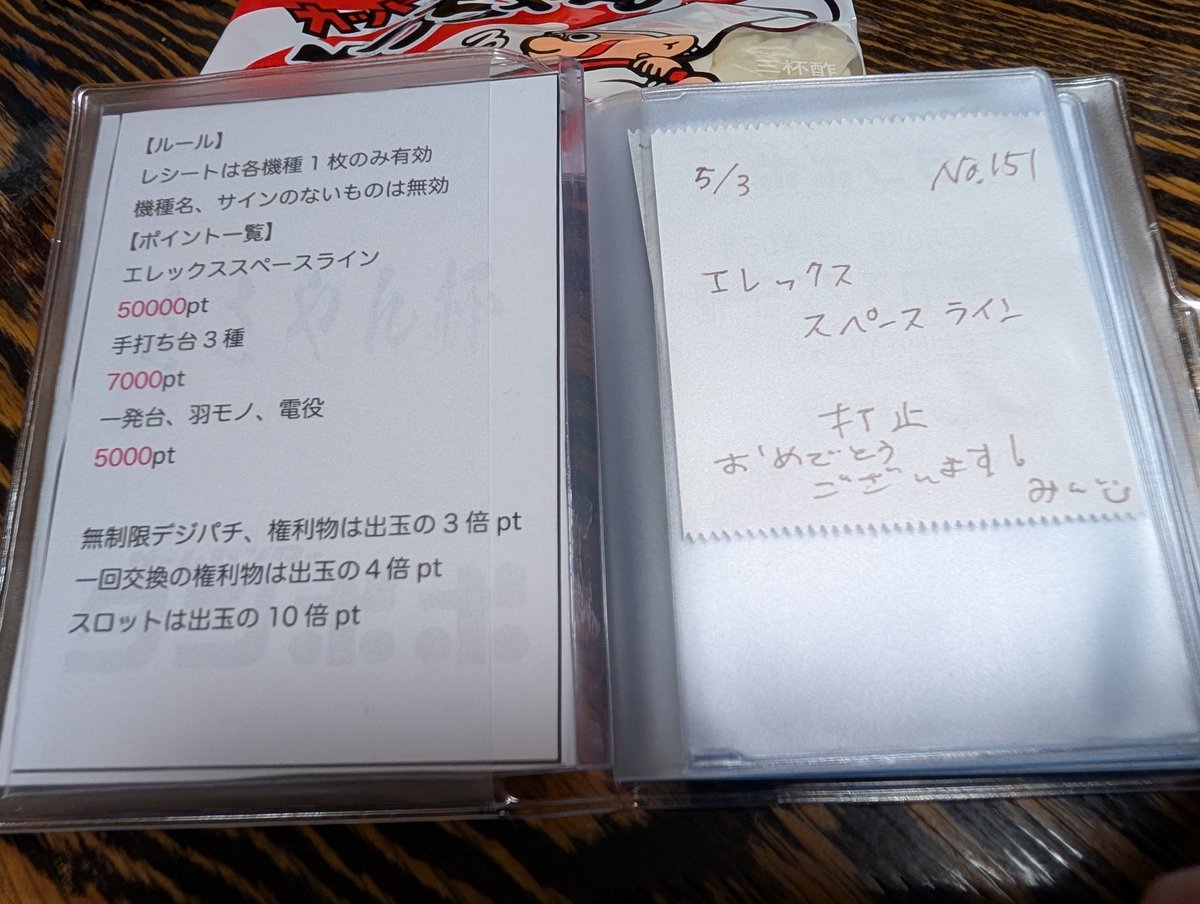 三杯酢
【ルール】
レシートは各機種1枚のみ有効
機種名、サインのないものは無効
【ポイント一覧】
エレックススペースライン
50000pt
手打ち台3種
7000pt
一発台、羽モノ、電役
5000pt
無制限デジパチ、権利物は出玉の3倍pt
一回交換の権利物は出玉の4倍pt
スロットは出玉の10倍pt
5/3 No.151
エレックス
スペースライン
打止
おめでとう
ございます!